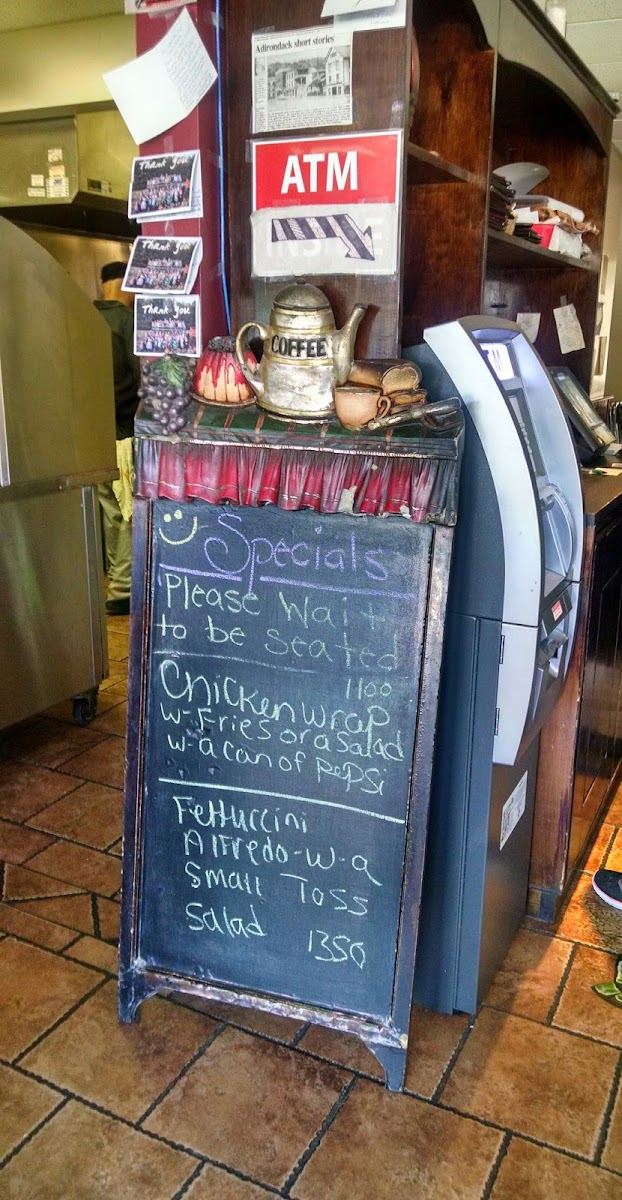 Adirondack short stories
ATM
INSIDE
Thank you
Thank you
Thank you
COFFEE
Specials
Please Wait
to be Seated
1100
Chicken Wrap
w-Fries or a Salad
w-a can of Pepsi
Fettuccini
Alfredo-w-a
Small Toss
Salad 1350